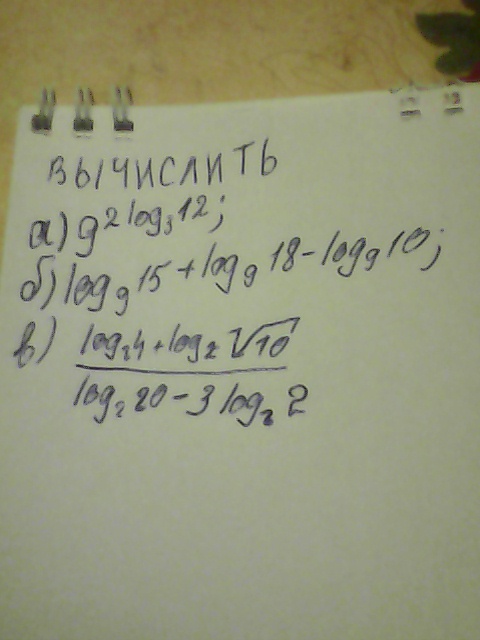 ВЫЧИСЛИТЬ
а) 9^{2 log_3 12};
б) log_9 15 + log_9 18 - log_9 10;
в) \frac{log_2 4 + log_2 √10}{log_2 20 - 3 log_2 2}